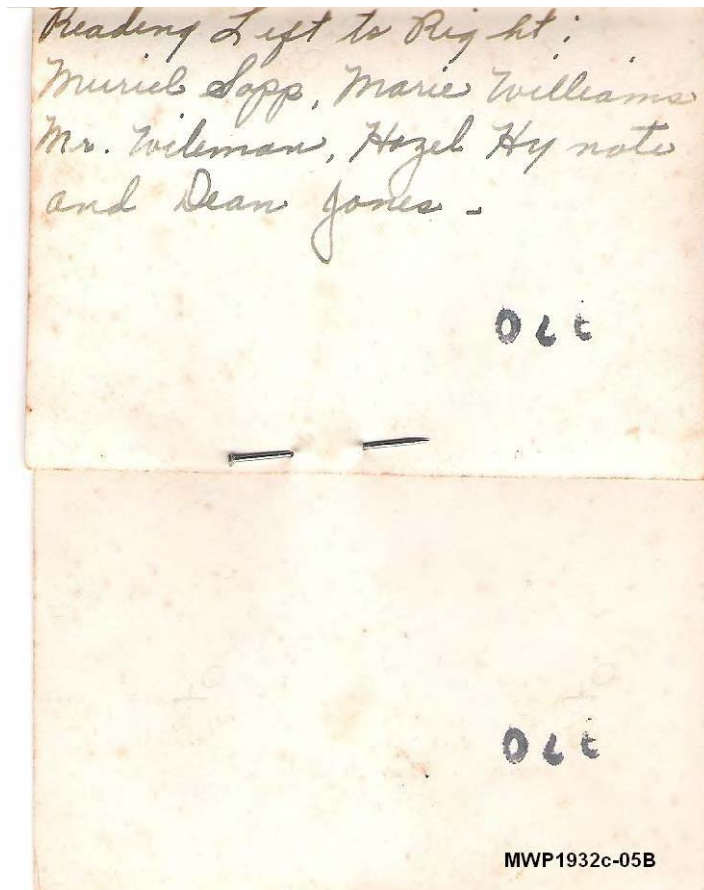 Reading Left to Right:
Muriel Sapp, Marie Williams
Mr. Wileman, Hazel Hynote
and Dean Jones -
Oct
Oct
MWP1932c-05B